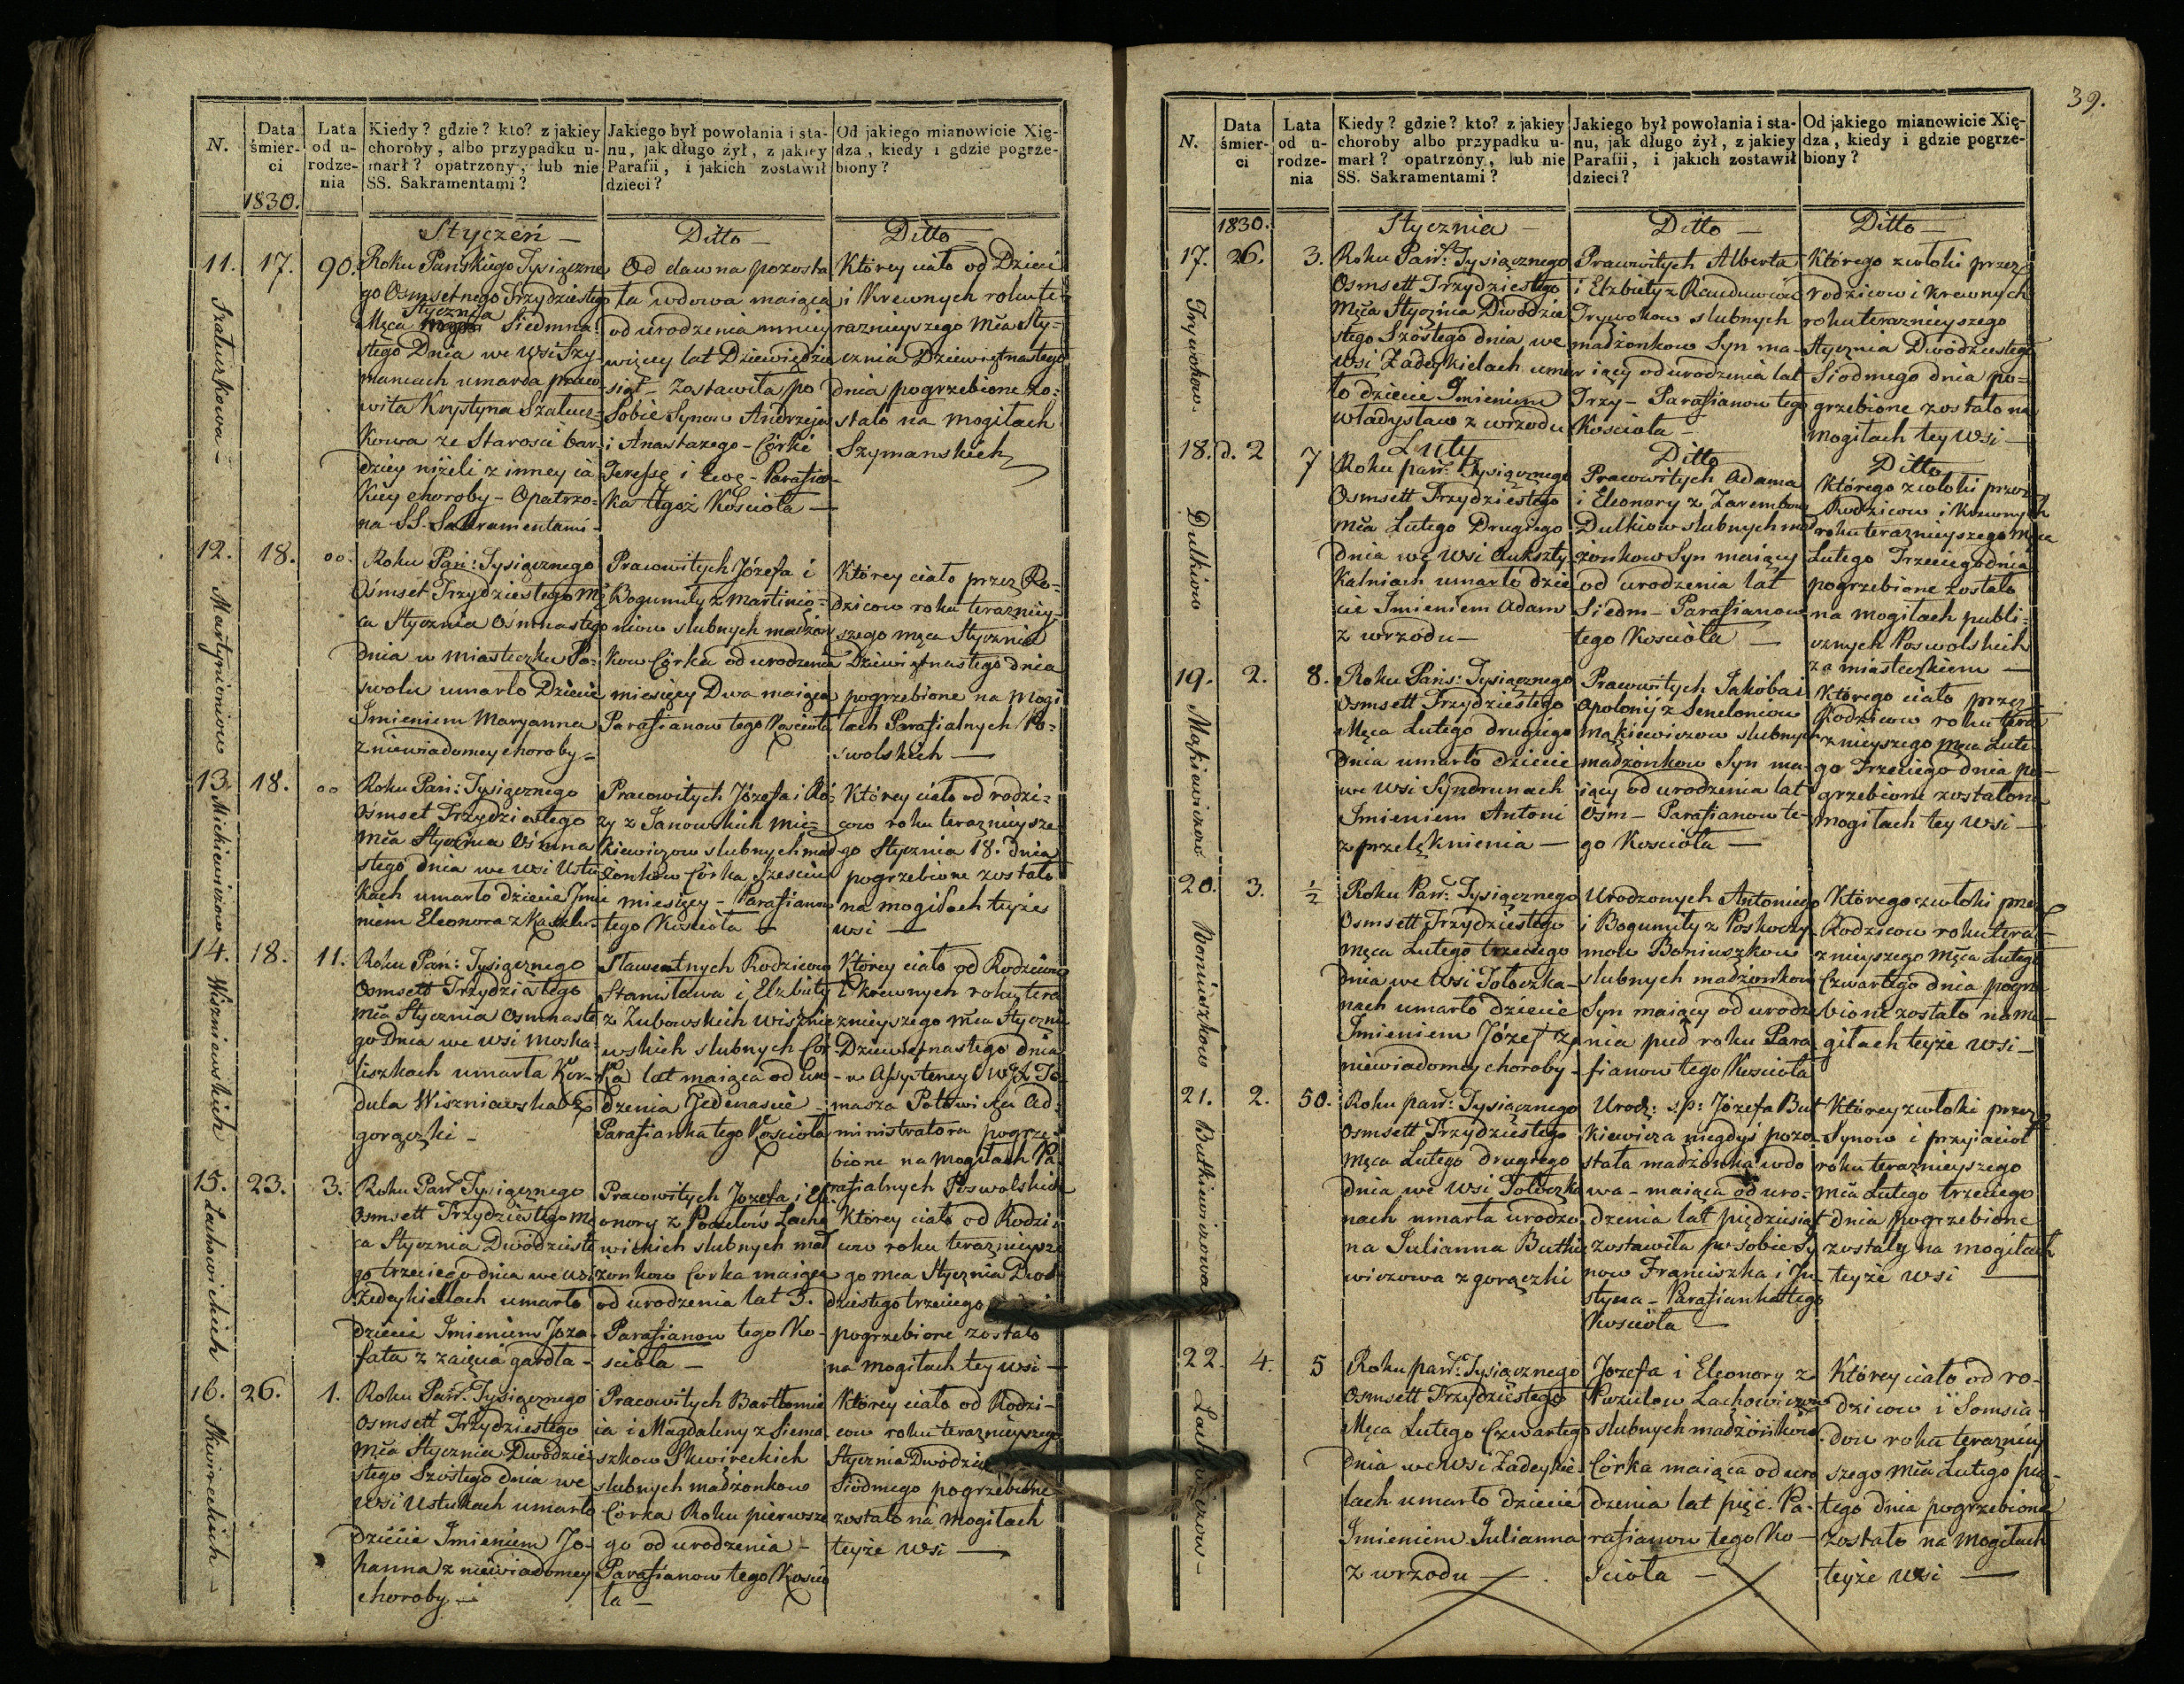 N.
Data śmierci
1830.
Lata od urodzenia
Kiedy? gdzie? kto? z jakiey
choroby, albo przypadku u-
marł? opatrzony, lub nie
SS. Sakramentami?
Jakiego był powołania i sta-
nu, jak długo żył, z jakiey
Parafii, i jakich zostawił
dzieci?
Od jakiego mianowicie Xię-
dza, kiedy i gdzie pogrze-
biony?
Styczeń —
Ditto —
Ditto —
11.
17.
90.
Szaturkowa —
Roku Pańskiego Tysiączne
go Osmsetnego Trzydziestego
Męca Stycznia Siedmna-
stego Dnia we Wsi Szy
mancach umarła praco
wita Krystyna Szatur-
kowa ze Starosci bar-
dziey niżeli z inney ia
kiey choroby - Opatrzo-
na SS. Sakramentami -
Od dawna pozosta
ła wdowa maiąca
od urodzenia mniey
więcey lat Dziewiędzie
siąt - Zostawiła po
Sobie Synow Andrzeja
i Anastazego - Córki
Teressę i Ewę - Parafian-
ka tegoż Kościoła —
Którey ciało od Dzieci
i Krewnych roku te-
raznieyszego Mca Sty-
cznia Dziewiętnastego
dnia pogrzebione zo-
stało na mogiłach
Szymanskich
12.
18.
00.
Martynieniow
Roku Pań: Tysiącznego
Ośmset Trzydziestego Mę
ca Stycznia Osmnastego
dnia w miasteczku Po-
swolu umarło Dziecie
Imieniem Maryanna
z niewiadomey choroby -
Pracowitych Józefa i
Bogumiły z Martinio-
niow slubnych madżon
kow Córka od urodzenia
miesięcy Dwa maiąca
Parafianow tego Kościoła
Którey ciało przez Ro-
dzicow roku terazniey-
szego męca Stycznia
Dziewiętnastego dnia
pogrzebione na Mogi
łach Parafialnych Po-
swolskich —
13
18.
00
Mickiewiczow
Roku Pań: Tysiącznego
Ośmset Trzydziestego
Mca Stycznia Ośmna
stego dnia we Wsi Ustu
kach umarło dziecie Imie
niem Eleonora z Kaszlu -
Pracowitych Józefa i Ró-
zy z Janowskich Mic-
kiewiczow slubnych mad
żonkow Córka Szesciu
miesięcy - Parafianow
tego Kościoła —
Którey ciało od rodzi-
cow roku teraznieysze
go Stycznia 18. dnia
pogrzebione zostało
na mogiłach teyże
wsi —
14.
18.
11.
Wiszniewskich
Roku Pań: Tysiącznego
Osmsett Trzydziestego
Mca Stycznia Osmnaste
go Dnia we wsi Moska-
liszkach umarła Kor-
dula Wiszniewska z
gorączki -
Sławetnych Rodzicow
Stanisława i Elzbiety
z Zubowskich Wisznie
wskich slubnych Cór-
ka lat maiąca od uro-
dzenia Jedenascie
Parafianka tego Kościoła
Którey ciało od Rodzicow
i krewnych roku tera
znieyszego Mca Stycznia
Dziewiętnastego dnia
w Assystencyi WJX To-
masza Ad-
ministratora pogrze-
bione na Mogiłach Pa-
rafialnych Poswolskich
15.
23.
3.
Lachowickich
Roku Pań: Tysiącznego
Osmsett Trzydziestego Mę
ca Stycznia Dwódzieste
go trzeciego dnia we wsi
Zedeykiellach umarło
dziecie Imieniem Joza-
fata z zaięcia gardła -
Pracowitych Jozefa i Ele
onory z Pocełow Lacho
wickich slubnych mał
żonkow Corka maiąca
od urodzenia lat 3.
Parafianow tego Ko-
scioła —
Którey ciało od Rodzi-
cow roku teraznieysze
go mca Stycznia Dwó-
dziestego trzeciego
pogrzebione zostało
na mogiłach tey wsi —
16.
26.
1.
Skwireckich —
Roku Pań: Tysiącznego
Osmsett Trzydziestego
Mca Stycznia Dwódzie-
stego Szóstego dnia we
Wsi Ustukach umarło
dziecie Imieniem Jo-
hanna z niewiadomey
choroby -
Pracowitych Bartłomie
ia i Magdaleny z Siema-
szkow Skwireckich
slubnych madżonkow
Córka Roku pierwsze
go od urodzenia -
Parafianow tego Koscio
ła —
Którey ciało od Rodzi-
cow roku teraznieyszego
Stycznia
Siódmego pogrzebione
zostało na Mogiłach
teyże wsi —
39.
N.
Data śmierci
Lata od urodzenia
Kiedy? gdzie? kto? z jakiey
choroby albo przypadku u-
marł? opatrzony, lub nie
SS. Sakramentami?
Jakiego był powołania i sta-
nu, jak długo żył, z jakiey
Parafii, i jakich zostawił
dzieci?
Od jakiego mianowicie Xię-
dza, kiedy i gdzie pogrze-
biony?
1830.
Stycznia —
Ditto —
Ditto —
17.
26.
3.
Trywokow -
Roku Pań: Tysiącznego
Osmsett Trzydziestego
Męca Stycznia Dwódzie
stego Szóstego dnia we
wsi Zadeykielach umar
ło dziecie Imieniem
Władysław z wrzodu
Prawowitych Alberta
i Elzbiety z Rauduwiow
Trywokow slubnych
madżonkow Syn ma-
iący od urodzenia lat
Trzy - Parafianow tego
Koscioła —
Którego zwłoki przez
rodzicow i krewnych
roku teraznieyszego
Stycznia Dwódziestego
Siodmego dnia po-
grzebione zostało na
mogiłach tey wsi —
Luty
Ditto
Ditto
18.
d. 2
7
Dulkiow
Roku pań: Tysiącznego
Osmsett Trzydziestego
Mca Lutego Drugiego
dnia we Wsi Aukszty
kalniach umarło dzie
cie Imieniem Adam
z wrzodu —
Prawowitych Adama
i Eleonory z Zarembow
Dulkiow slubnych mad
żonkow Syn maiący
od urodzenia lat
Siedm - Parafianow
tego Kościoła —
Którego zwłoki przez
Rodzicow i krewnych
roku teraznieyszego Męca
Lutego Trzeciego dnia
pogrzebione zostało
na mogiłach publi-
cznych Poswolskich
za miasteczkiem —
19.
2.
8.
Mackiewiczow
Roku Pańs: Tysiącznego
Osmsett Trzydziestego
Męca Lutego drugiego
dnia umarło dziecie
we Wsi Syndrunach
Imieniem Antoni
z przelęknienia —
Prawowitych Jakóba i
Apolonij z Seneloniow
Mąkiewiczow slubnych
madżonkow Syn ma-
iący od urodzenia lat
Ośm - Parafianow te-
go Koscioła —
Którego ciało przez
Rodzicow roku tera
znieyszego Męca Lute
go Trzeciego dnia po-
grzebione zostało na
mogiłach tey Wsi —
20.
3.
½
Boniuszkow
Roku Pań: Tysiącznego
Osmsett Trzydziestego
Męca Lutego trzeciego
dnia we Wsi Tołoczka-
nach umarło dziecie
Imieniem Józef z
niewiadomey choroby -
Urodzonych Antoniego
i Bogumiły z Poskoczy-
mow Boniuszkow
slubnych madżonkow
Syn maiący od urodze
nia puł roku Para
fianow tego Kościoła
Którego zwłoki przez
Rodzicow roku tera-
znieyszego Męca Lutego
Czwartego dnia pogrze
bione zostało na mo-
giłach teyże wsi —
21.
2.
50.
Butkiewiczowa
Roku pań: Tysiącznego
Osmsett Trzydziestego
Męca Lutego drugiego
dnia we Wsi Tołoczka
nach umarła urodzo-
na Julianna Butkie
wiczowa z gorączki
Urodz: s.p: Józefa But
kiewicza niegdyś pozo-
stała madżonka wdo
wa - maiąca od uro-
dzenia lat pięcdziesiąt
zostawiła po sobie Sy
now Franciszka i Ju
styna - Parafianka tego
Koscioła —
Którey zwłoki przez
Synow i przyiacioł
roku teraznieyszego
Mca Lutego trzeciego
dnia pogrzebione
zostały na mogiłach
teyże wsi —
22.
4.
5
Roku pań: Tysiącznego
Osmsett Trzydziestego
Męca Lutego Czwartego
dnia we wsi Zadeykie-
lach umarło dziecie
Imieniem Julianna
z wrzodu —
Jozefa i Eleonory z
Puzułow Lachowiczow
slubnych madżonkow
Córka maiąca od uro
dzenia lat pięć. Pa-
rafianow tego Ko-
scioła —
Którey ciało od ro-
dzicow i Somsia
dow roku terazniey
szego Mca Lutego pią-
tego dnia pogrzebione
zostało na mogiłach
teyże wsi —